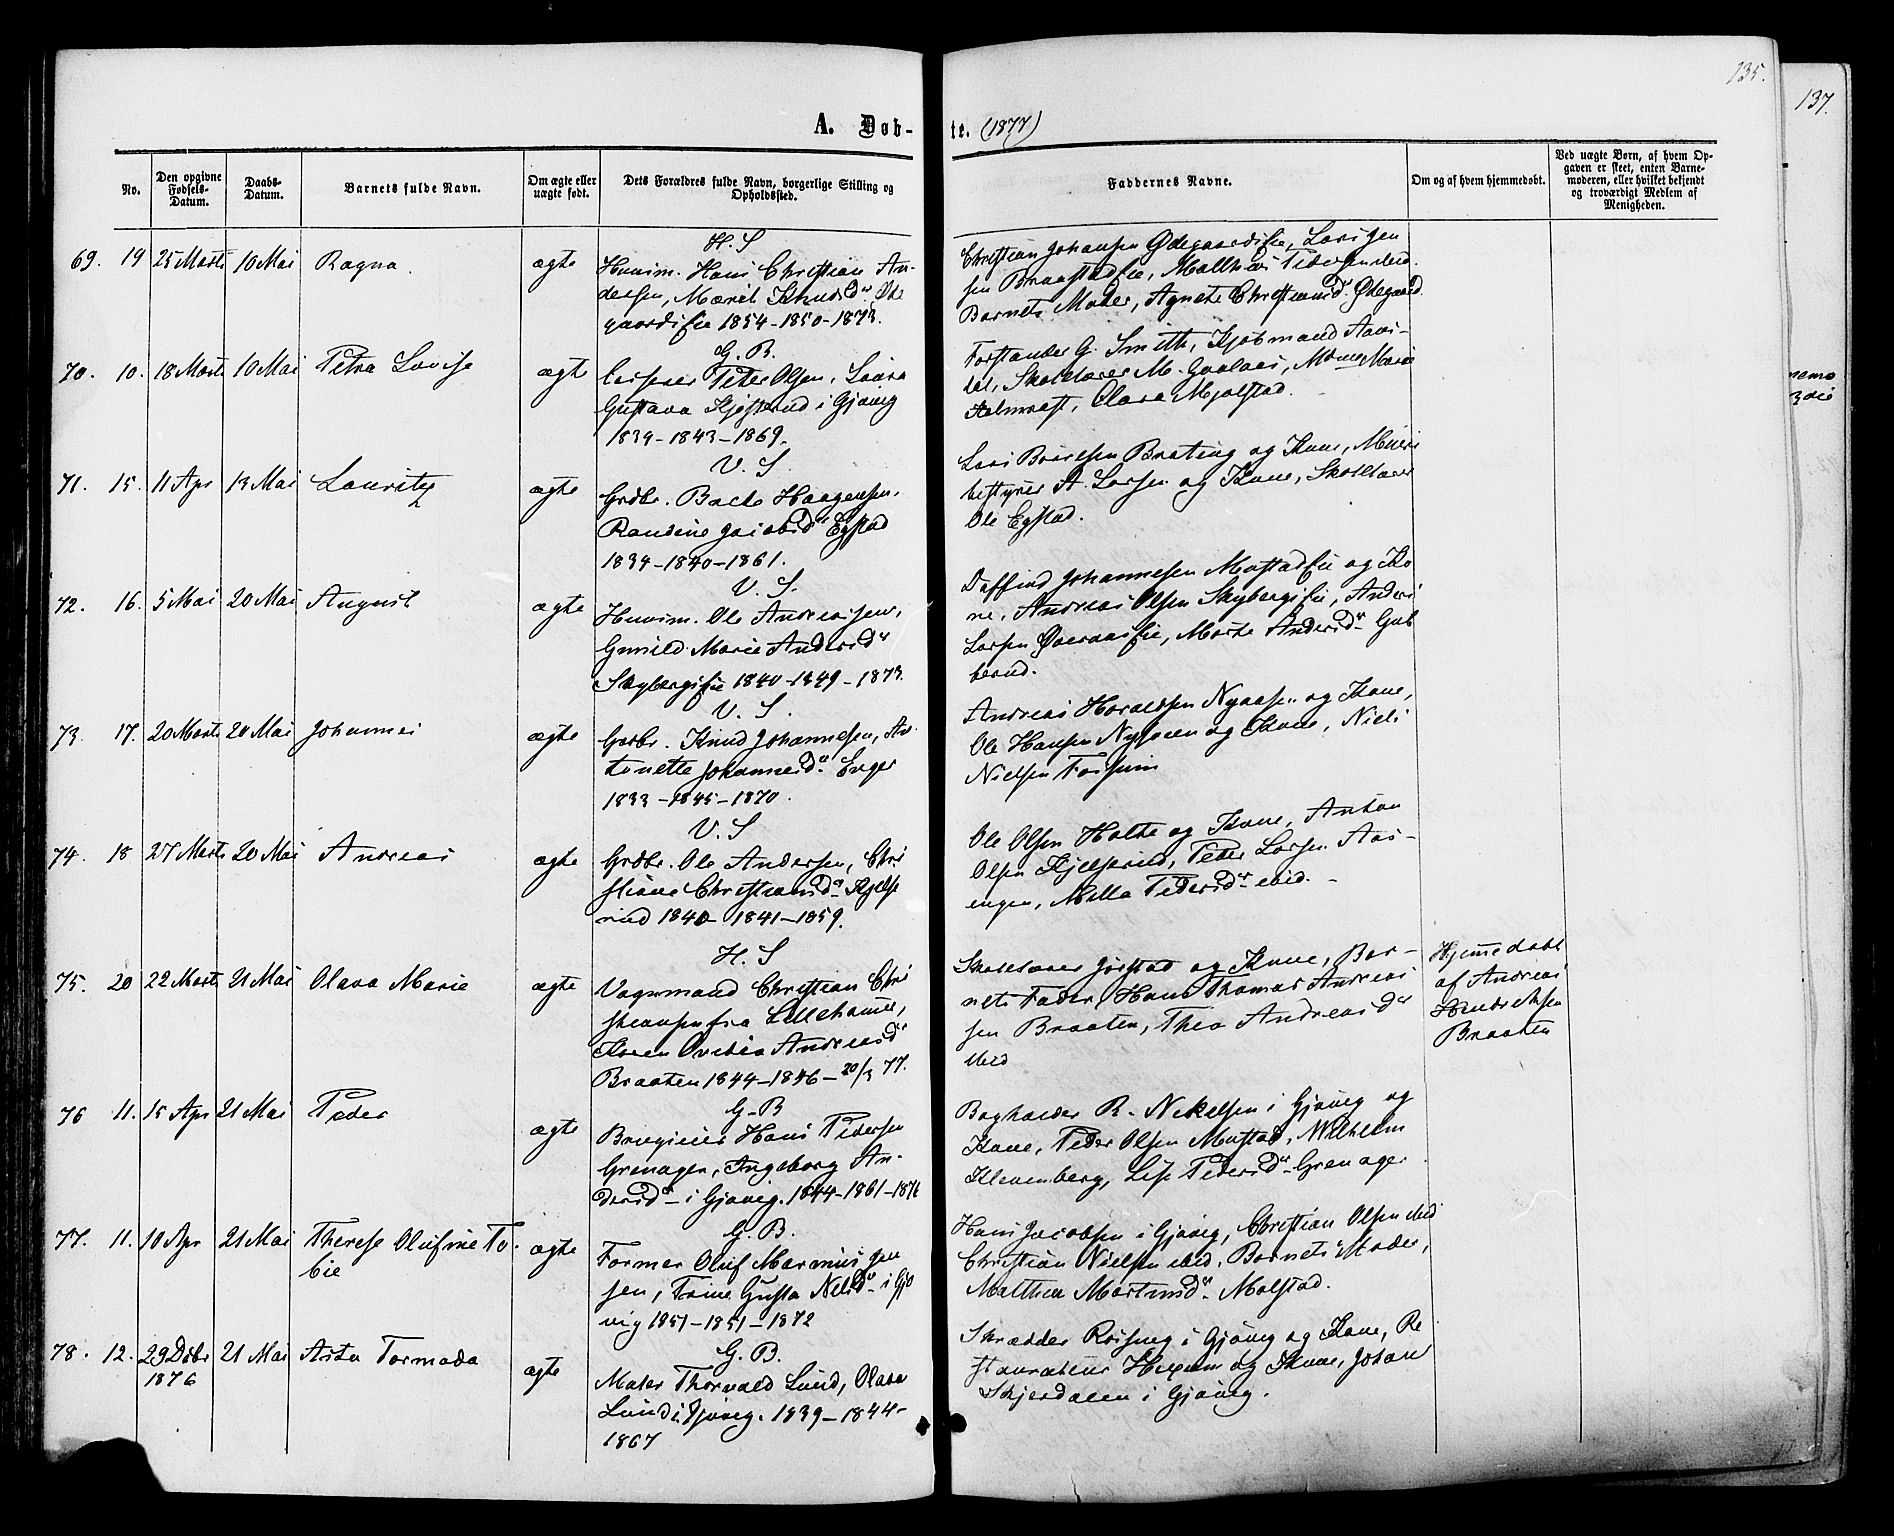 135.
137.
A. Døb-
te. (1877)
No.
Den opgivne Fødsels-Datum.
Daabs-Datum.
Barnets fulde Navn.
Om ægte eller uægte født.
Dets Forældres fulde Navn, borgerlige Stilling og Opholdssted.
Faddernes Navne.
Om og af hvem hjemmedøbt.
Ved uægte Børn, af hvem Opgaven er skeet, enten Barnemoderen, eller hvilket bekjendt og troværdigt Medlem af Menigheden.
69. 19 25 Marts 10 Mai Ragna. ægte
H. S
Huusm. Hans Christian An-
dersen, Marit Knudsd. Øde
gaardseie 1854-1850-1873.
Christian Johansen Ødegaardseie, Lars Jen
sen Braastadeie, Mathias Pedersen ibid.
Barnets Moder, Agnete Christiansd. Ødegaard.
70. 10. 18 Marts 10 Mai Petra Lovise ægte
G. B.
Peter Olsen, Laura
Gustava i Gjøvig
1839-1843-1869.
Forstander G. Smith, Kjøbmand Aars-
Skolelærer M. Mdme Marie
Clara Mjølstad.
71. 15. 11 Apr 13 Mai Lauritz ægte
V. S.
Grdbr. Haagensen,
Randine Jacobsd Egstad
1834-1840-1861.
Lars og Kone,
bestyrer A. Larsen og Kone, Skolelærer
Ole Egstad.
72. 16. 5 Mai 20 Mai August ægte
V. S.
Huusm. Ole Andreassen,
Gunild Marie Andersd
Skybergseie 1840-1849-1873.
Johannesen Mustadeie og Ko
ne, Andreas Olsen Skybergseie, Anders
Larsen Marte Andersd
73. 17. 20 Marts 20 Mai Johannes ægte
V. S.
Grdbr. Knud Johannesen, An-
tonette Johannesd. Enger
1833-1845-1870.
Andreas Haraldsen og Kone,
Ole Hansen og Kone, Niels
Nielsen Fossum
74. 18 27 Marts 20 Mai Andreas ægte
V. S
Grdbr. Ole Andersen, Chri
stiane Christiansd Kjelse
rud 1840-1841-1859.
Ole Olsen Holte og Kone, Anton
Olsen Kjelserud, Peder Larsen Aas-
engen, Pedersd ibid.
75. 20 22 Marts 21 Mai Olava Marie ægte
H. S
Vognmand Christian Chri
stiansen fra Lillehamer,
Karen Andreasd
Braaten 1844-1846-20/3 77.
Skolelærer Jørstad og Kone, Bar-
nets Fader, Hans Thomas Andreas
sen Braaten, Thea Andreasd
ibid
Hjemedøbt
af Andreas
Hendriksen
Braaten
76 11. 15 Apr 21 Mai Peder ægte
G-B
Hans Pedersen
Grenager, Ingeborg An-
dersd i Gjøvig. 1844-1861-1876
Bogholder R. i Gjøvig og
Kone, Peder Olsen Mustad, Wilhelm
Klevenberg, Lise Pedersd Grenager
77. 11. 10 Apr 21 Mai Therese Olufine To-
bie ægte
G. B.
Former Oluf Marinius Jen
sen, Trine Gusta Nilsd i Gjø
vig 1851-1851-1872
Hans Jacobsen i Gjøvig, Christian Olsen ibid
Christian Nielsen ibid. Barnets Moder,
Mathea Mortensd Mølstad.
78. 12. 29 Dcbr
1876 21 Mai Asta Tormoda ægte
G. B.
Maler Thorvald Lund, Olava
Lund i Gjøvig. 1839-1844-
1867
Skrædder i Gjøvig og Kone, Re
stauratør og Kone, Johan
Skjerdalen i Gjøvig.